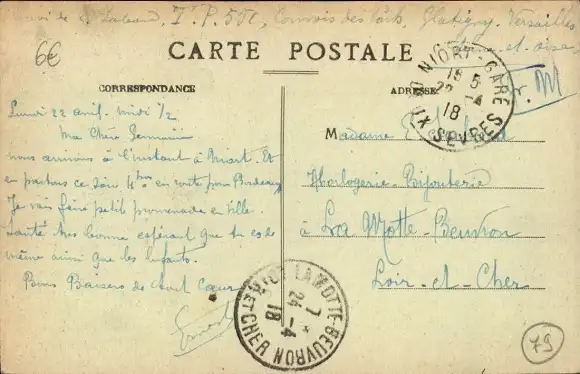 6€
de E. Labarde, T.P. 551, Convois des Parcs, Glatigny. Versailles
Seine-et-oise.
F. M
CARTE POSTALE
CORRESPONDANCE
ADRESSE
NIORT-GARE
15 5
22 -4
18
DX SEVRES
Lundi 22 avril. midi 1/2
Ma Chère Germaine
nous arrivons à l'instant à Niort. Et
en partons ce soir 4 hres en route pour Bordeaux
Je vais faire petit promenade en Ville.
Santé très bonne espérant que tu es de
même ainsi que les enfants.
Bons Baisers de tout Cœur
Ernest
Madame E.
Horlogerie-Bijouterie
à La Motte-Beuvron
Loir-et-Cher
LAMOTTE-BEUVRON
7 *
24 -4
18
ET CHER
79